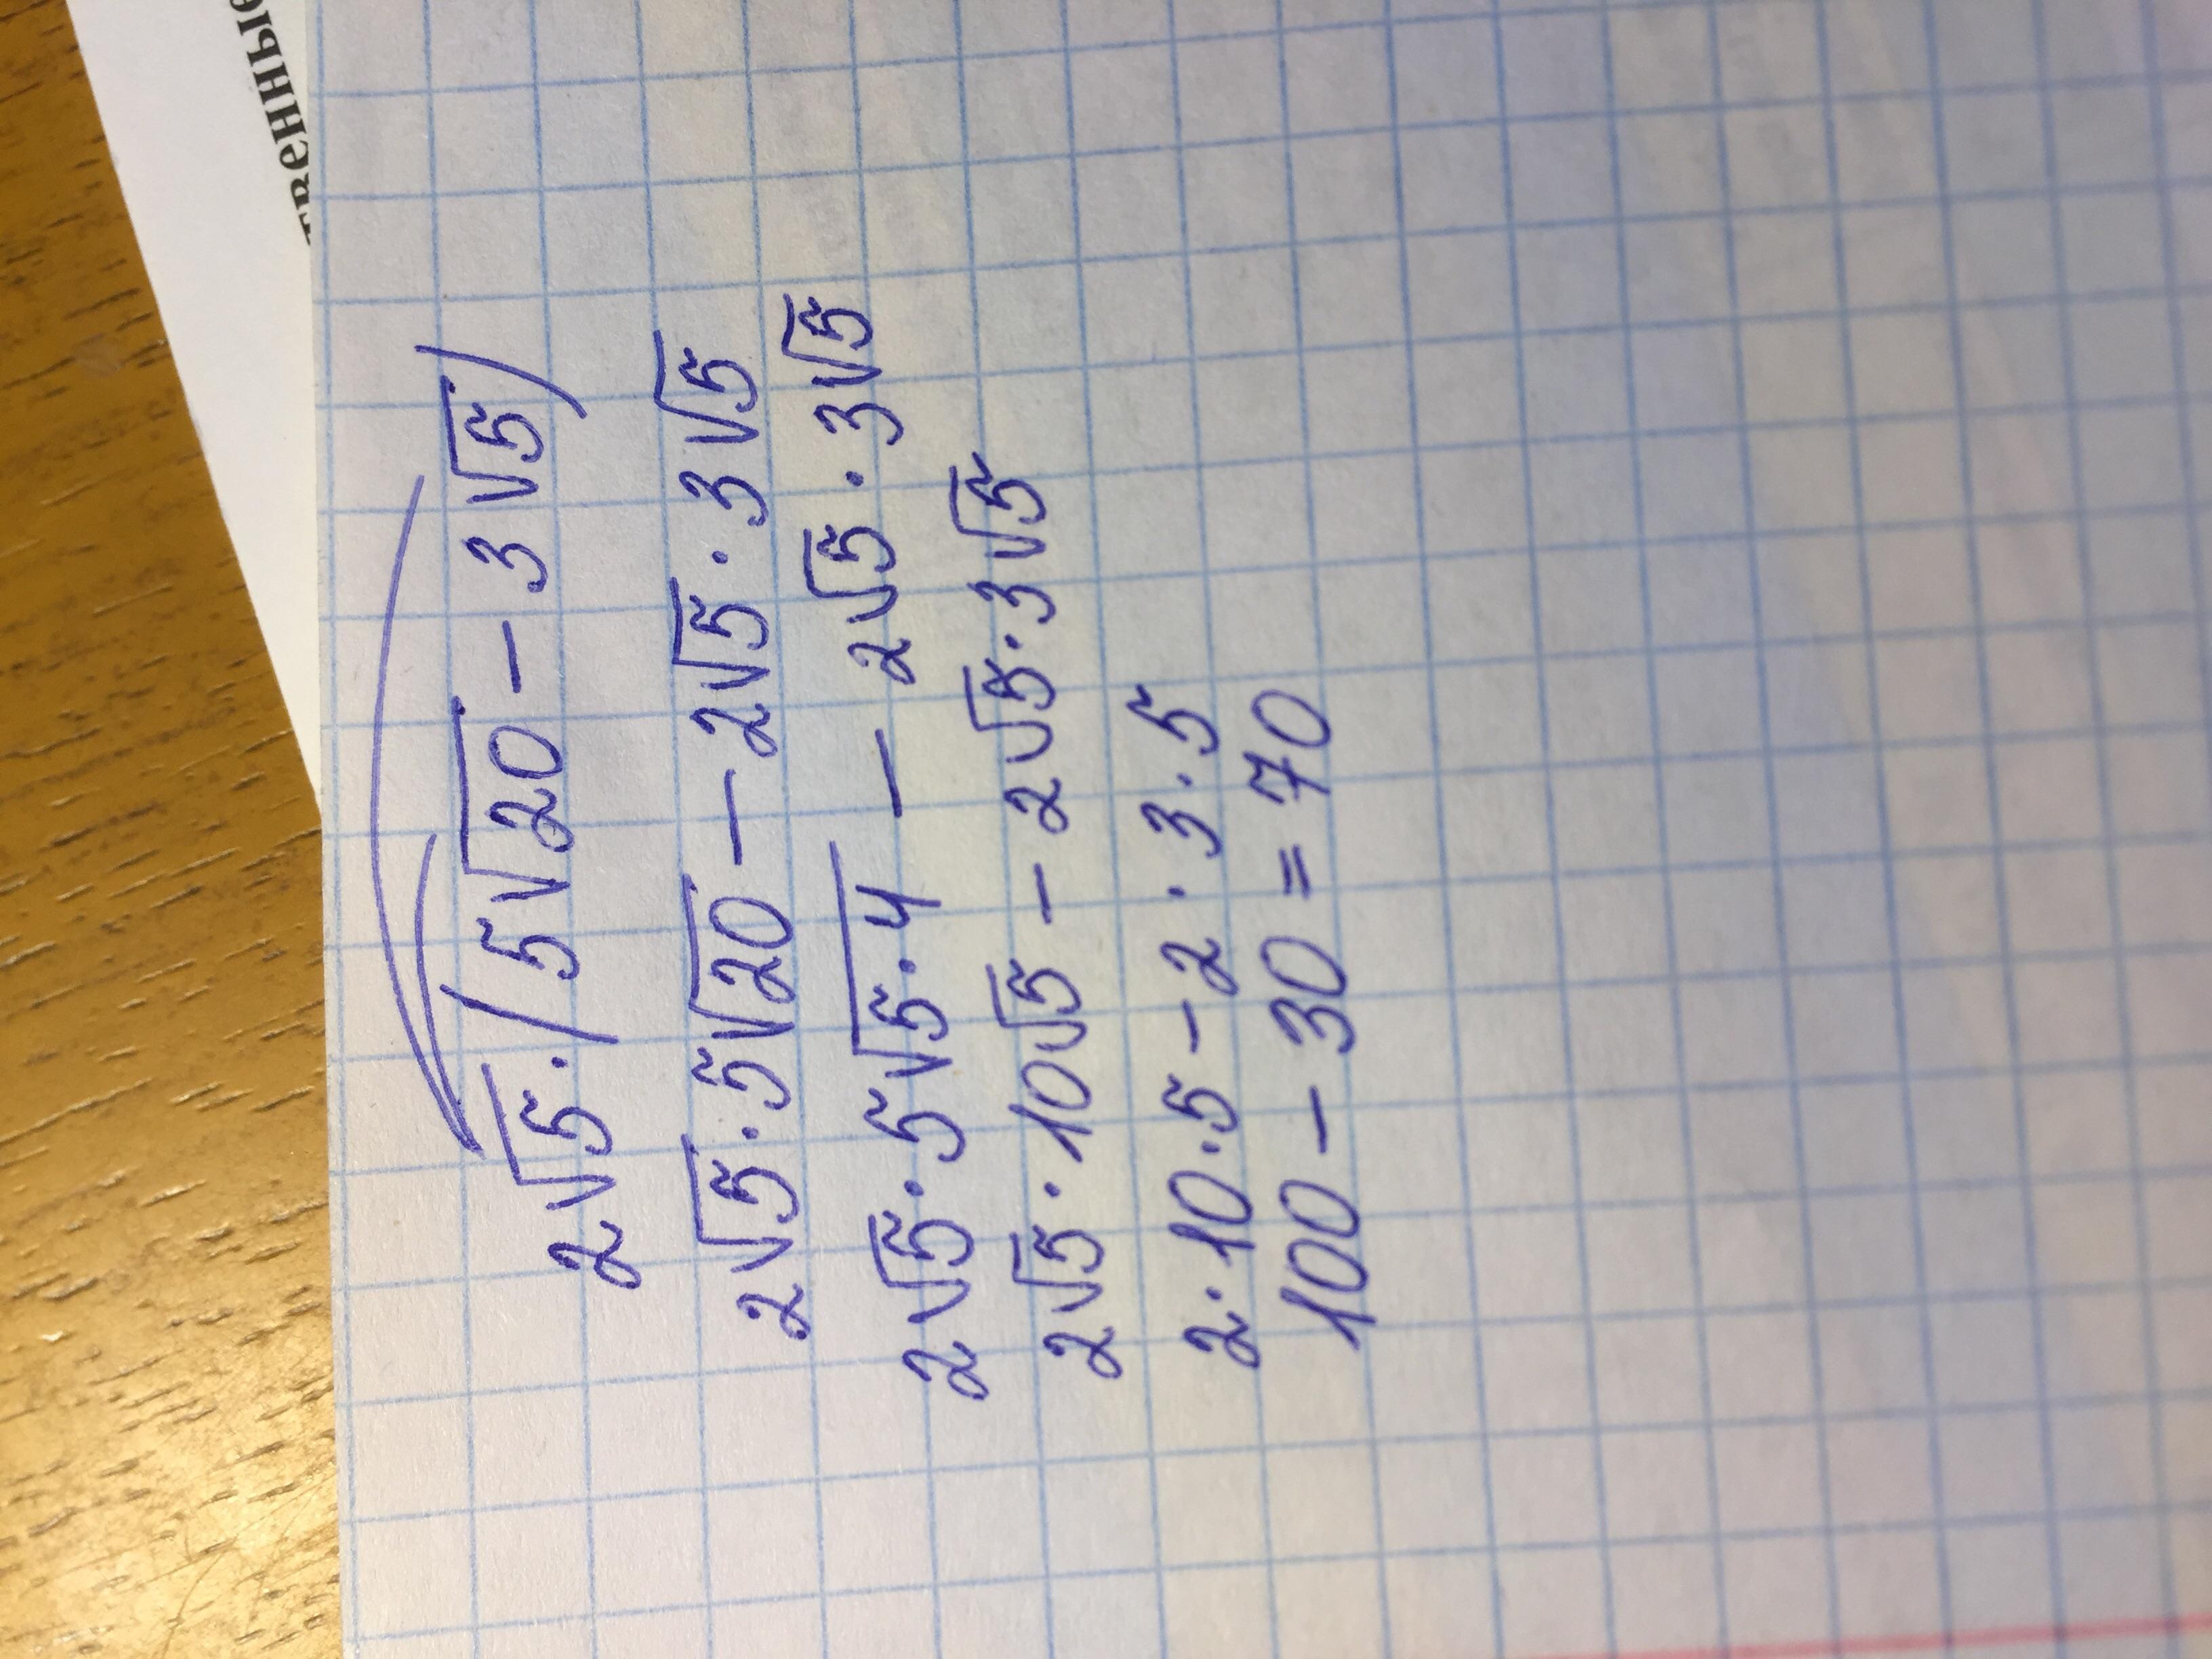 твенные
2√5·(5√20 - 3√5)
2√5·5√20 - 2√5·3√5
2√5·5√5·4 - 2√5·3√5
2√5·10√5 - 2√5·3√5
2·10·5 - 2·3·5
100 - 30 = 70